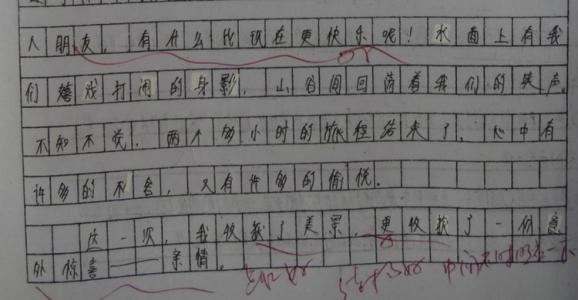 人朋友，有什么比现在更快乐呢！水面上有我
们嬉戏打闹的身影，山谷间回荡着我们的笑声。
不知不觉，两个多小时的旅程结束了，心中有
许多的不舍，又有许多的愉悦。
这一次，我收获了美景，更收获了一份意
外惊喜——亲情。